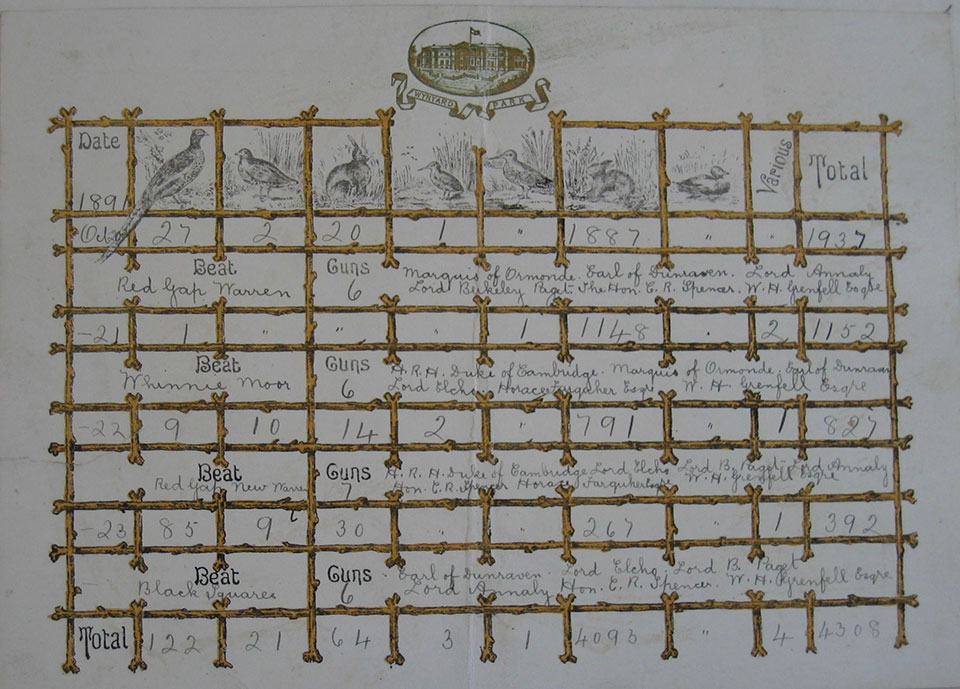 WYNYARD PARK
Date Various Total
1891
Octo 20 27 2 20 1 " 1887 " " 1937
Beat Guns Marquis of Ormonde. Earl of Dunraven. Lord Annaly
Red Gap Warren 6 Lord Berkeley Paget. The Hon. E. R. Spencer. W. H. Grenfell Esqre
-21 1 " " " 1 1148 " 2 1152
Beat Guns H. R. H. Duke of Cambridge. Marquis of Ormonde. Earl of Dunraven
Whinnie Moor 6 Lord Elcho Horace Farquher Esqre W. H Grenfell Esqre
-22 9 10 14 2 " 791 " 1 827
Beat Guns H. R. H. Duke of Cambridge Lord Elcho Lord B. Paget. Lord Annaly
Red Gap New Warren 7 Hon. E. R. Spencer Horace Farquher Esqre W. H. Grenfell Esqre
-23 85 9 30 " " 267 " 1 392
Beat Guns Earl of Dunraven Lord Elcho. Lord B. Paget
Black Squares 6 Lord Annaly Hon. E. R. Spencer. W. H. Grenfell Esqre
Total 122 21 64 3 1 4093 " 4 4308